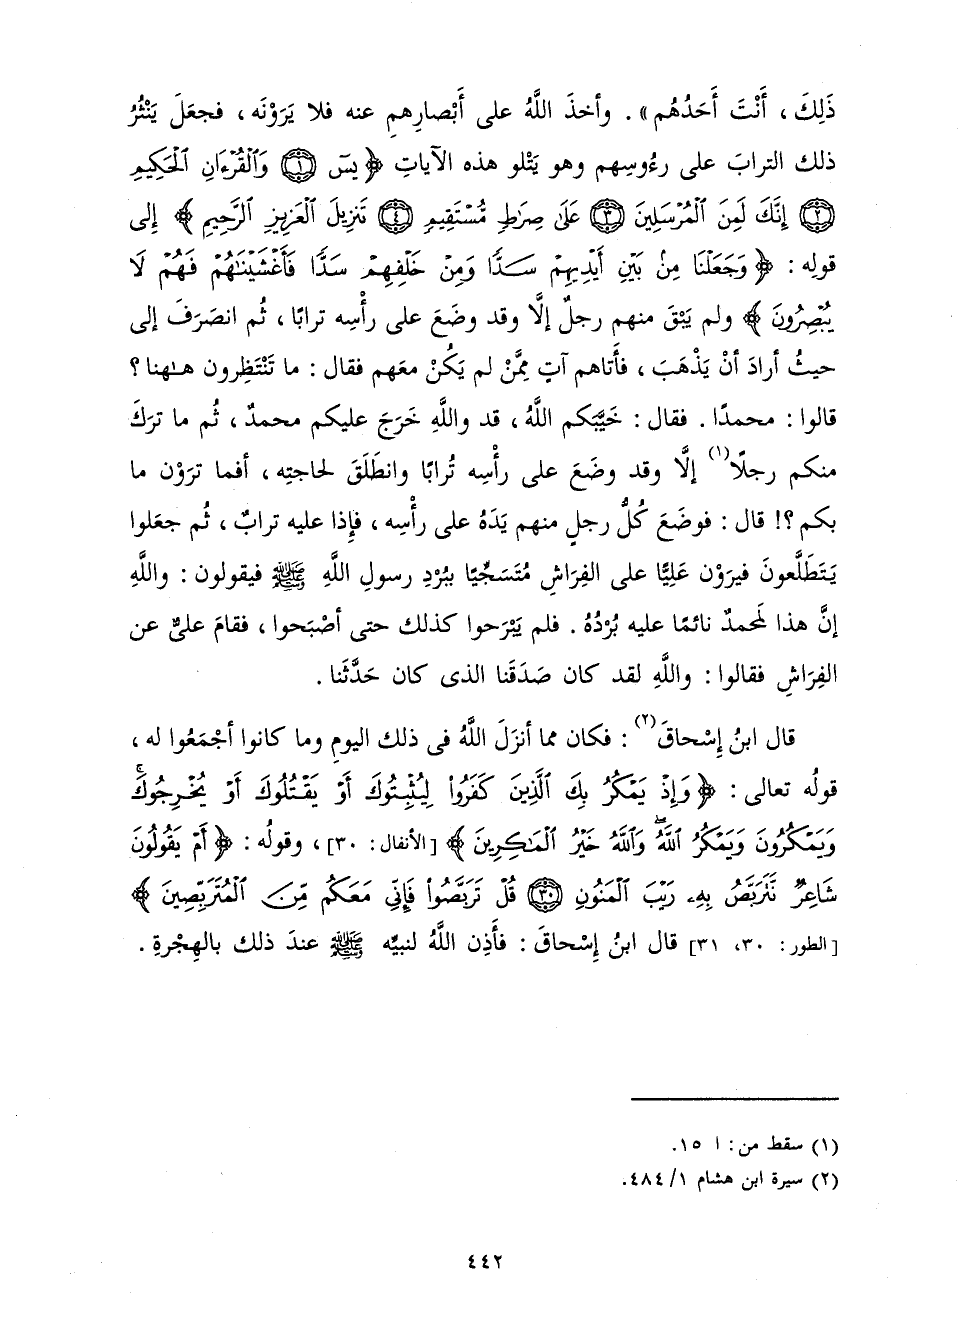 ذَلِكَ ، أَنْتَ أَحَدُهُم » . وأخذَ اللَّهُ على أَبْصارِهم عنه فلا يَرَوْنَه ، فجعَلَ يَنْثُرُ
ذلك الترابَ على رءُوسِهم وهو يَتْلو هذه الآياتِ ﴿ يسٓ ۝١ وَٱلْقُرْءَانِ ٱلْحَكِيمِ
۝٢ إِنَّكَ لَمِنَ ٱلْمُرْسَلِينَ ۝٣ عَلَىٰ صِرَٰطٍ مُّسْتَقِيمٍ ۝٤ تَنزِيلَ ٱلْعَزِيزِ ٱلرَّحِيمِ ﴾ إلى
قولِه : ﴿ وَجَعَلْنَا مِنۢ بَيْنِ أَيْدِيهِمْ سَدًّا وَمِنْ خَلْفِهِمْ سَدًّا فَأَغْشَيْنَٰهُمْ فَهُمْ لَا
يُبْصِرُونَ ﴾ ولم يَبْقَ منهم رجلٌ إلَّا وقد وضَعَ على رأْسِه ترابًا ، ثُم انصَرَفَ إلى
حيثُ أرادَ أنْ يَذْهَبَ ، فأَتاهم آتٍ مِمَّنْ لم يَكُنْ معَهم فقال : ما تَنْتَظِرون هـٰهنا ؟
قالوا : محمدًا . فقال : خَيَّبَكم اللَّهُ ، قد واللَّهِ خَرَجَ عليكم محمدٌ ، ثُم ما ترَكَ
منكم رجلًا(١) إلَّا وقد وضَعَ على رأْسِه تُرابًا وانطَلَقَ لحاجتِه ، أفما ترَوْن ما
بكم ؟! قال : فوضَعَ كُلُّ رجلٍ منهم يَدَهُ على رأْسِه ، فإذا عليه ترابٌ ، ثُم جعَلوا
يَتَطَلَّعونَ فيرَوْن عَلِيًّا على الفِرَاشِ مُتَسَجِّيًا ببُرْدِ رسولِ اللَّهِ ﷺ فيقولون : واللَّهِ
إنَّ هذا لمحمدٌ نائمًا عليه بُرْدُهُ . فلم يَبْرَحوا كذلك حتى أصْبَحوا ، فقامَ علىٌّ عن
الفِرَاشِ فقالوا : واللَّهِ لقد كان صَدَقَنا الذى كان حَدَّثَنا .
قال ابنُ إسْحاقَ(٢) : فكان مما أنزَلَ اللَّهُ فى ذلك اليومِ وما كانوا أجْمَعُوا له ،
قولُه تعالى : ﴿ وَإِذْ يَمْكُرُ بِكَ ٱلَّذِينَ كَفَرُوا۟ لِيُثْبِتُوكَ أَوْ يَقْتُلُوكَ أَوْ يُخْرِجُوكَ ۚ
وَيَمْكُرُونَ وَيَمْكُرُ ٱللَّهُ ۖ وَٱللَّهُ خَيْرُ ٱلْمَٰكِرِينَ ﴾ [الأنفال : ٣٠] ، وقولُه : ﴿ أَمْ يَقُولُونَ
شَاعِرٌ نَّتَرَبَّصُ بِهِۦ رَيْبَ ٱلْمَنُونِ ۝٣٠ قُلْ تَرَبَّصُوا۟ فَإِنِّى مَعَكُم مِّنَ ٱلْمُتَرَبِّصِينَ ﴾
[الطور : ٣٠، ٣١] قال ابنُ إسْحاقَ : فأَذِن اللَّهُ لنبيِّه ﷺ عندَ ذلك بالهِجْرةِ .
(١) سقط من : ا ١٥.
(٢) سيرة ابن هشام ١/ ٤٨٤.
٤٤٢